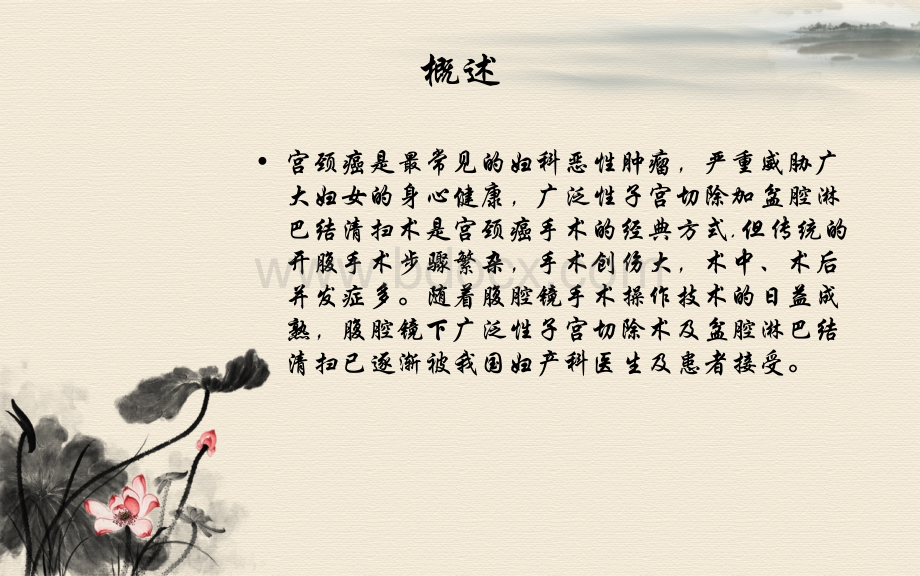 概述
• 宫颈癌是最常见的妇科恶性肿瘤，严重威胁广
大妇女的身心健康，广泛性子宫切除加盆腔淋
巴结清扫术是宫颈癌手术的经典方式.但传统的
开腹手术步骤繁杂，手术创伤大，术中、术后
并发症多。随着腹腔镜手术操作技术的日益成
熟，腹腔镜下广泛性子宫切除术及盆腔淋巴结
清扫已逐渐被我国妇产科医生及患者接受。
www.bdocx.com